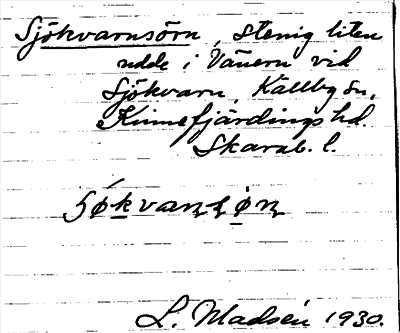 Sjökvarnsörn, stenig liten
udde i Vänern vid
Sjökvarn, Källby sn,
Kinnefjärdings hd.
Skarab. l.
L. Madsén 1930.